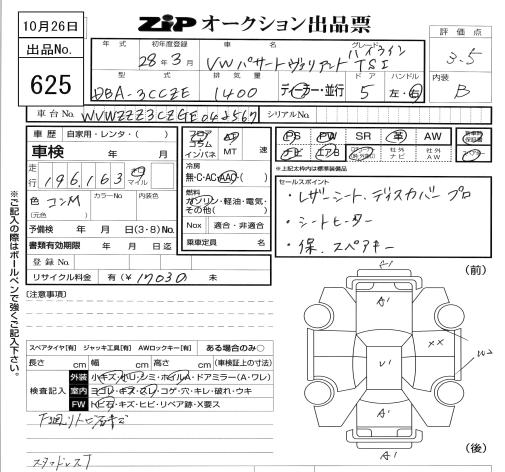 10月26日
ZIP オークション出品票
出品No.
625
年式 初年度登録 車名 グレード 評価点
28年3月 VWパサートヴァリアント TSI ハイライン 3.5
型式 排気量 ドア ハンドル 内装
DBA-3CCZE 1400 ディーラー・並行 5 左・右 B
車台No. WVWZZZ3CZGE シリアルNo.
車歴 自家用・レンタ・( )
フロア コラム インパネ AT MT 速
PS PW SR 革 AW 新車時保証書
車検
ナビ エアB 社外ナビ 社外AW
走行 196,163 km マイル
冷房 無・C・AC・AAC・( )
※上記太枠内は標準装備品
色 (元色) コンM カラーNo. 内装色
燃料 ガソリン・軽油・電気・その他( )
セールスポイント
・レザーシート、ディスカバープロ
・シートヒーター
・保、スペアキー
予備検 年 月 日(3・8) No.
Nox 適合・非適合
書類有効期限 年 月 日迄
乗車定員 名
登録No.
リサイクル料金 有(¥17030) 未
※ご記入の際はボールペンで強くご記入下さい。
[注意事項]
(前)
A'
A'
XX
V'
W2
A'
スペアタイヤ[有] ジャッキ工具[有] AWロックキー[有] ある場合のみ○
長さ cm 幅 cm 高さ cm (車検証上の寸法)
検査記入
外装 小キズ・小U・シミ・ホイルA・ドアミラー(A・ワレ)
室内 ヨゴレ・キズ・スレ・コゲ・穴・キレ・破れ・ウキ
FW トビ石・キズ・ヒビ・リペア跡・X要ス
(後)
スタッドレスT